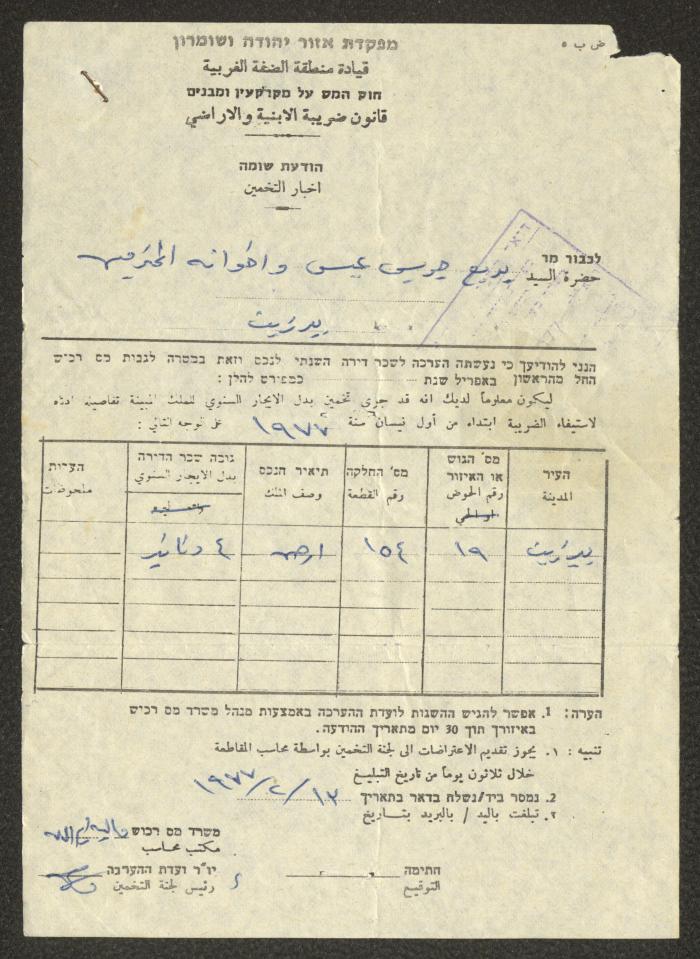 ض ب ٥
מפקדת אזור יהודה ושומרון
قيادة منطقة الضفة الغربية
חוק המס על מקרקעין ומבנים
قانون ضريبة الابنية والاراضي
הודעת שומה
اخبار التخمين
לכבור מר
حضرة السيد بديع جريس عيسى واخوانه المحترمين
بيرزيت
הנני להודיעך כי נעשתה הערכה לשכר דירה השנתי לנכס וזאת במטרה לגבות מס רכוש
החל מהראשון באפריל שנת כמפורט להלן :
ليكون معلوماً لديك انه قد جرى تخمين بدل الايجار السنوي للملك المبينة تفاصيله ادناه
لاستيفاء الضريبة ابتداء من أول نيسان سنة ١٩٧٧ على الوجه التالي :
העיר المدينة | מס' הגוש או האיזור رقم الحوض او الحي | מס' החלקה رقم القطعة | תיאיר הנכס وصف الملك | גובה שכר הדירה بدل الايجار السنوي | הערות ملحوظات
بيرزيت | ١٩ | ١٥٤ | ارض | ٤ دنانير
הערה: 1. אפשר להגיש השגות לועדת ההערכה באמצעות מנהל משרד מס רכיש
באיזורך תוך 30 יום מתאריך ההודעה.
تنبيه : ١. يجوز تقديم الاعتراضات الى لجنة التخمين بواسطة محاسب المقاطعة
خلال ثلاثون يوماً من تاريخ التبليغ
2. נמסר ביד/נשלח בדאר בתאריך ١٣/٢/١٩٧٧
٢. تبلغت باليد / بالبريد بتاريخ
משרד מס רכוש مالية رام الله
مكتب محاسب
יו"ר ועדת ההערכה
رئيس لجنة التخمين
חתימה
التوقيع